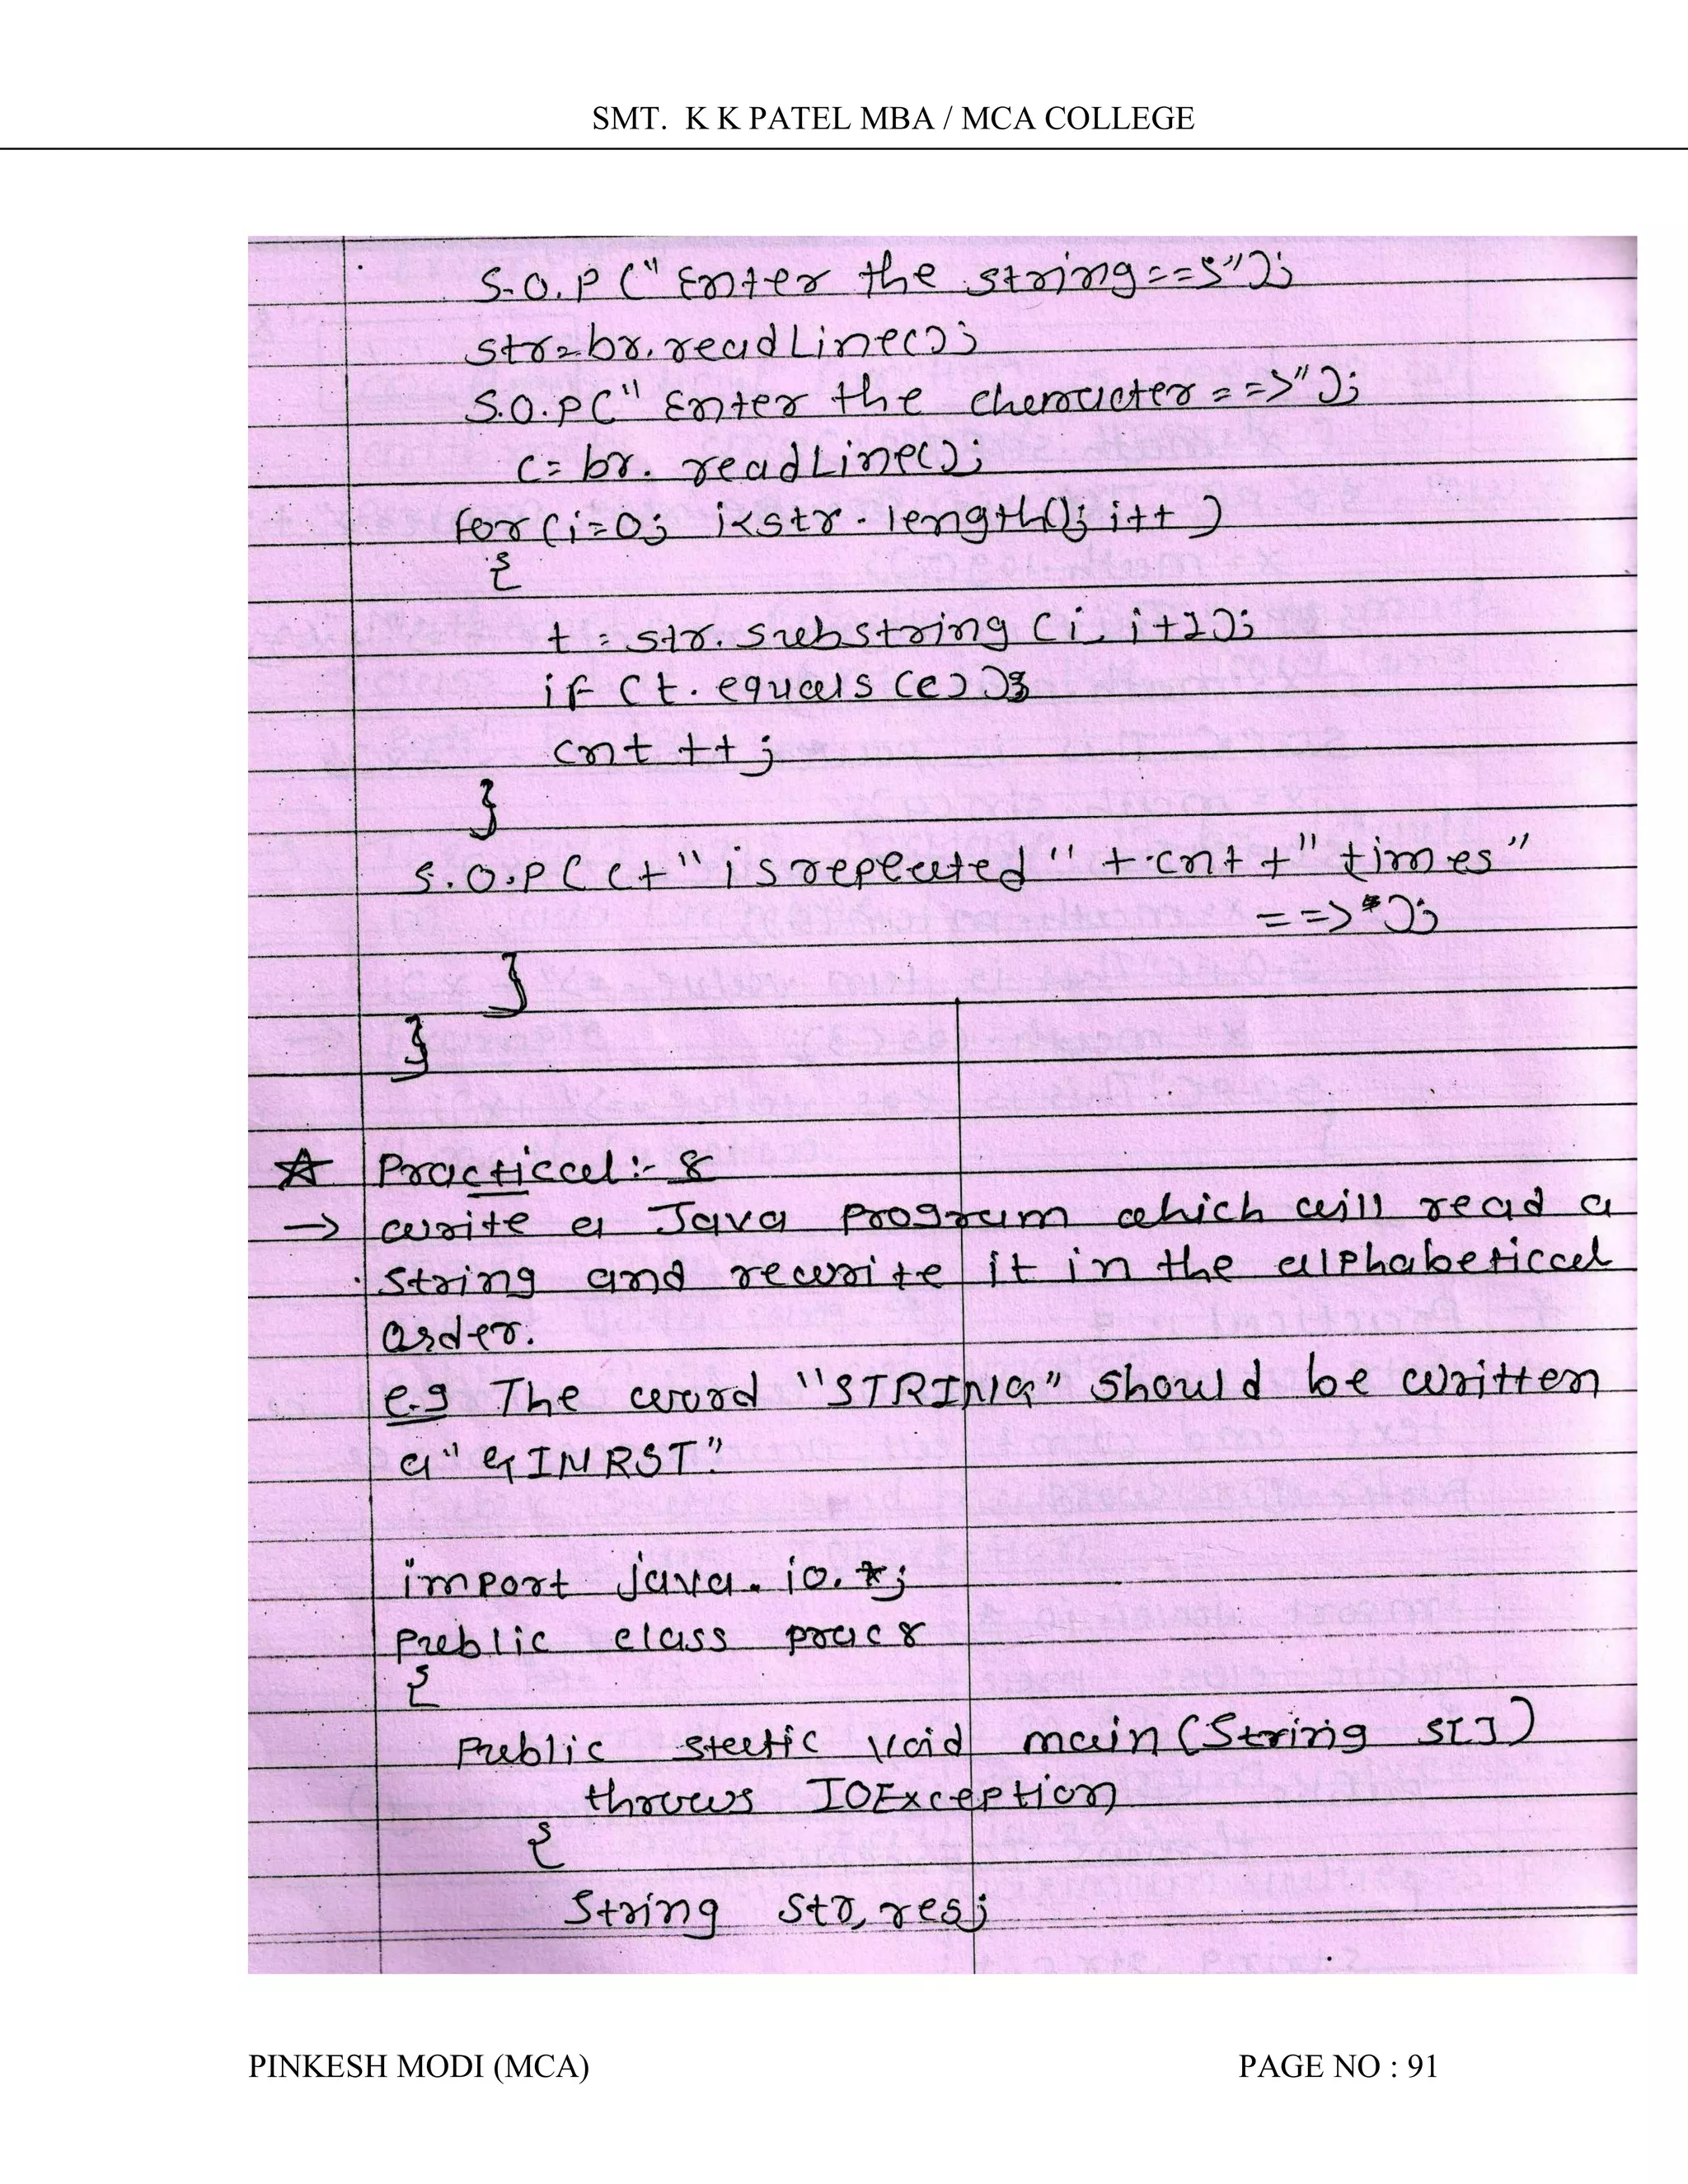 SMT. K K PATEL MBA / MCA COLLEGE
S.O.P ("Enter the string==>");
str=br.readLine();
S.O.P("Enter the character==>");
c=br.readLine();
for(i=0; i<str.length(); i++)
{
t=str.substring(i, i+1);
if (t.equals(c));
cnt++;
}
S.O.P(c+"is repeated"+cnt+"times"
==>");
}
}
☆ Practical:- 8
→ write a Java program which will read a
string and rewrite it in the alphabetical
order.
e.g The word "STRING" should be written
a "GINRST".
import java.io.*;
Public class prac8
{
Public static void main(String s[])
throws IOException
{
String str, res;
PINKESH MODI (MCA)
PAGE NO : 91